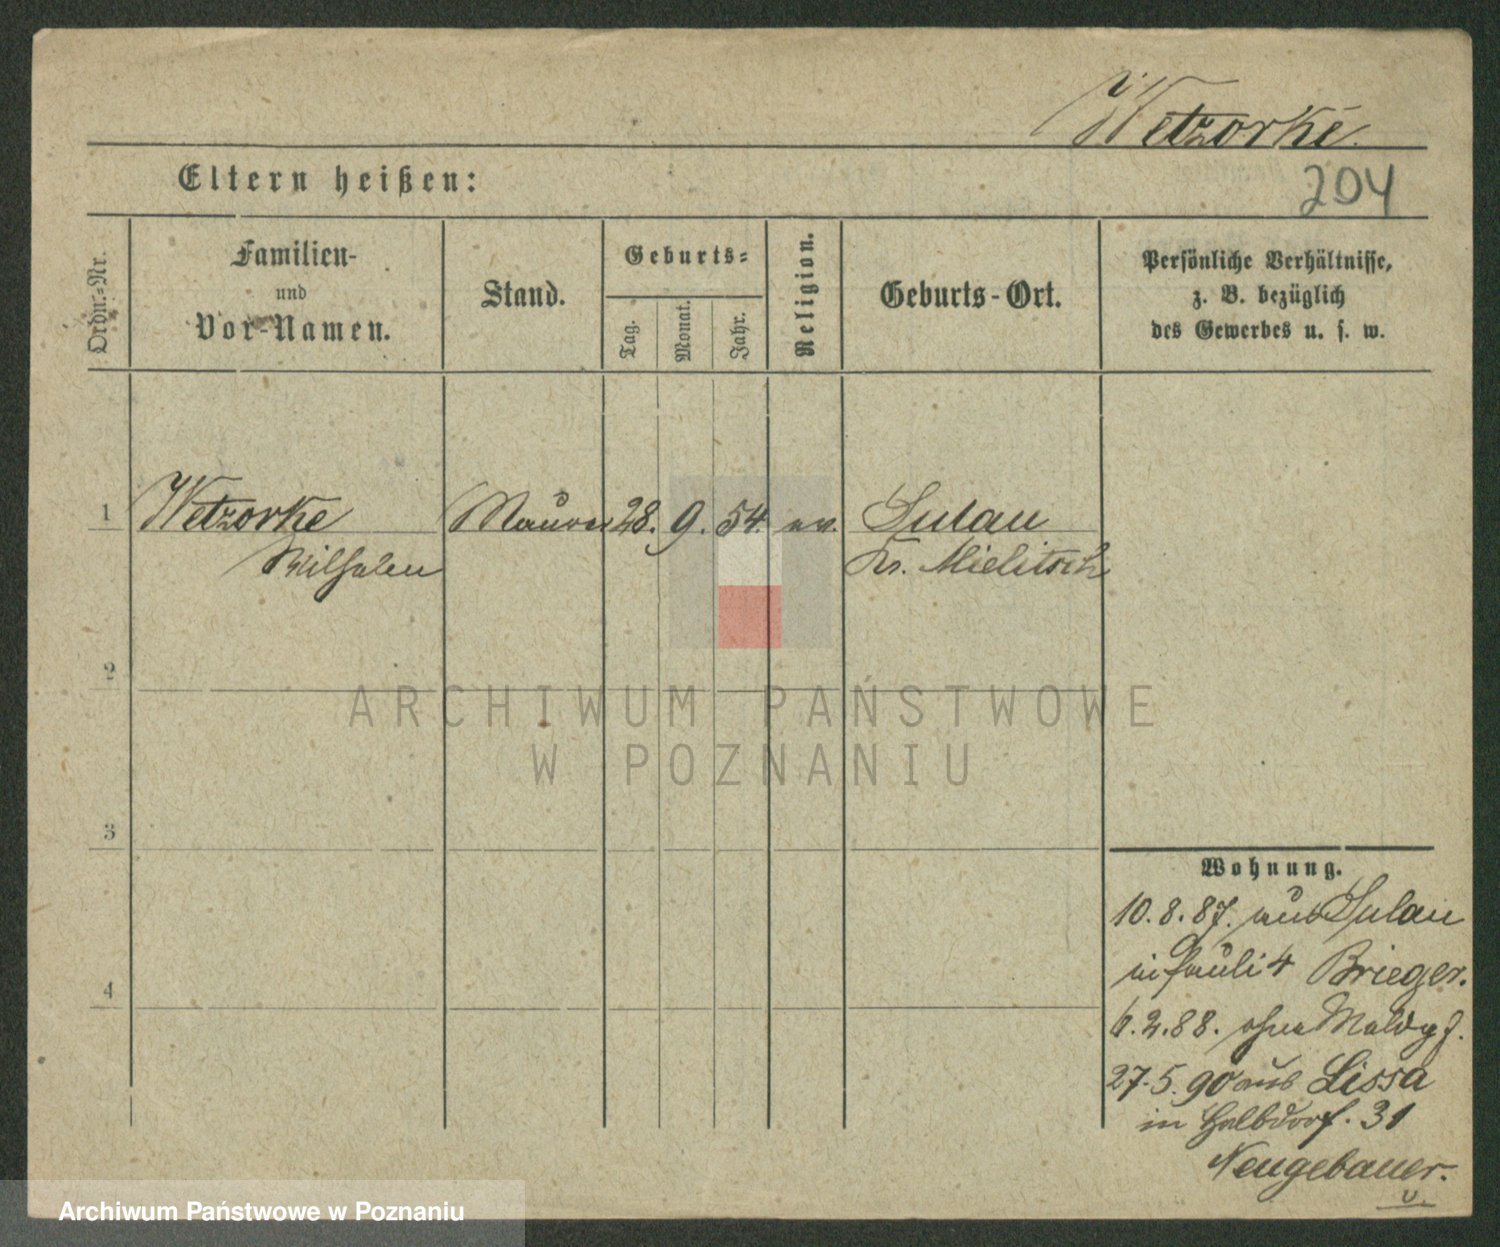 Wetzorke.
Eltern heißen:
204
Ordn.-Nr.
Familien-
und
Vor-Namen.
Stand.
Geburts-
Tag.
Monat.
Jahr.
Religion.
Geburts-Ort.
Persönliche Verhältnisse,
z. B. bezüglich
des Gewerbes u. s. w.
1 Wetzorke Maurer 28. 9. 54. ev. Sulau
Wilhelm Kr. Militsch
2
ARCHIWUM PAŃSTWOWE
W POZNANIU
3
Wohnung.
10.8.87. aus Sulau
in Pauli 4 Brieger.
2.88. ohne Meldg
4
27.5.90 aus Lissa
in Halbdorf. 31
Neugebauer.
Archiwum Państwowe w Poznaniu